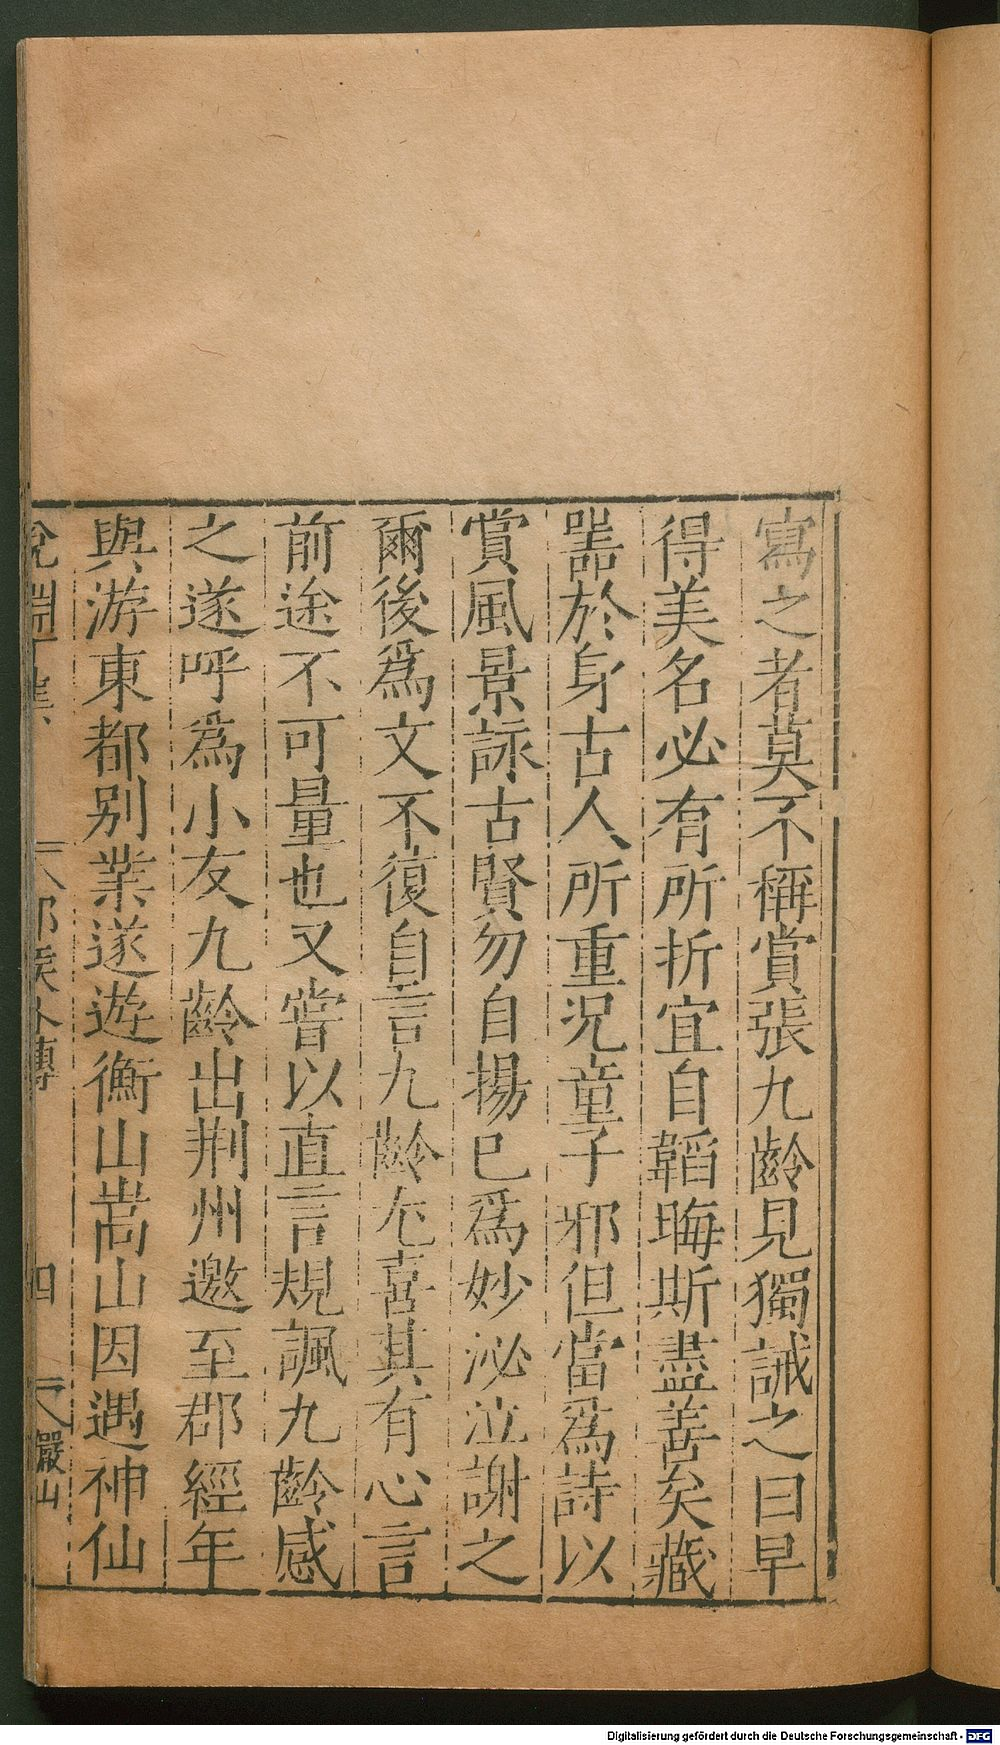 寫之者莫不稱賞張九齡見獨誡之曰早
得美名必有所折宜自韜晦斯盡善矣藏
噐於身古人所重況童子邪但當爲詩以
賞風景詠古賢勿自揚已爲妙泌泣謝之
爾後爲文不復自言九齡尤喜其有心言
前途不可量也又嘗以直言規諷九齡感
之遂呼爲小友九齡出荆州邀至郡經年
與游東都别業遂遊衡山嵩山因遇神仙
說淵 鄴侯外傳 四 儼山
Digitalisierung gefördert durch die Deutsche Forschungsgemeinschaft - DFG